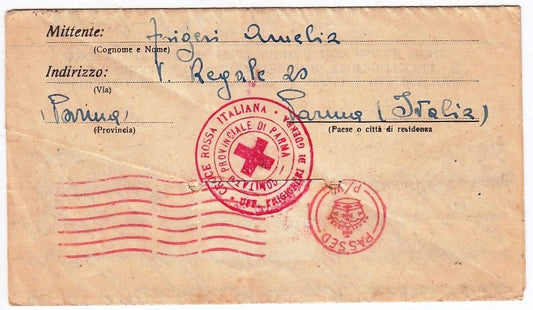 Mittente: Frigeri Amelia
(Cognome e Nome)
Indirizzo: V. Regale 20
(Via)
Parma Parma (Italia)
(Provincia) (Paese o città di residenza
CROCE ROSSA ITALIANA • UFF. PRIGIONIERI DI GUERRA
COMITATO PROVINCIALE DI PARMA
PASSED P/W